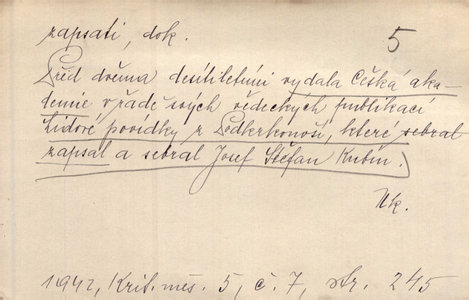 zapsati, dok.
5
Před dvěma desítiletími vydala Česká aka-
demie v řadě svých vědeckých publikací
lidové povídky z Podkrkonoší, které sebral
zapsal a sebral Josef Štefan Kubín.
Nk.
1942, Krit. měs. 5, č. 7, str. 245